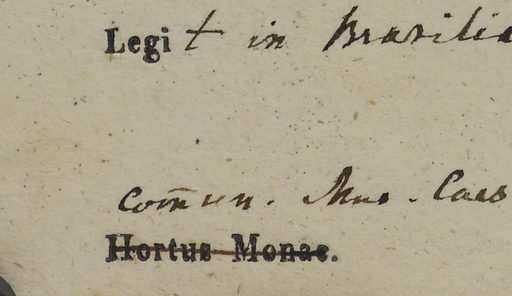 Legit in Brasilia
Com̄un. Mus. Caes
Hortus Monac.